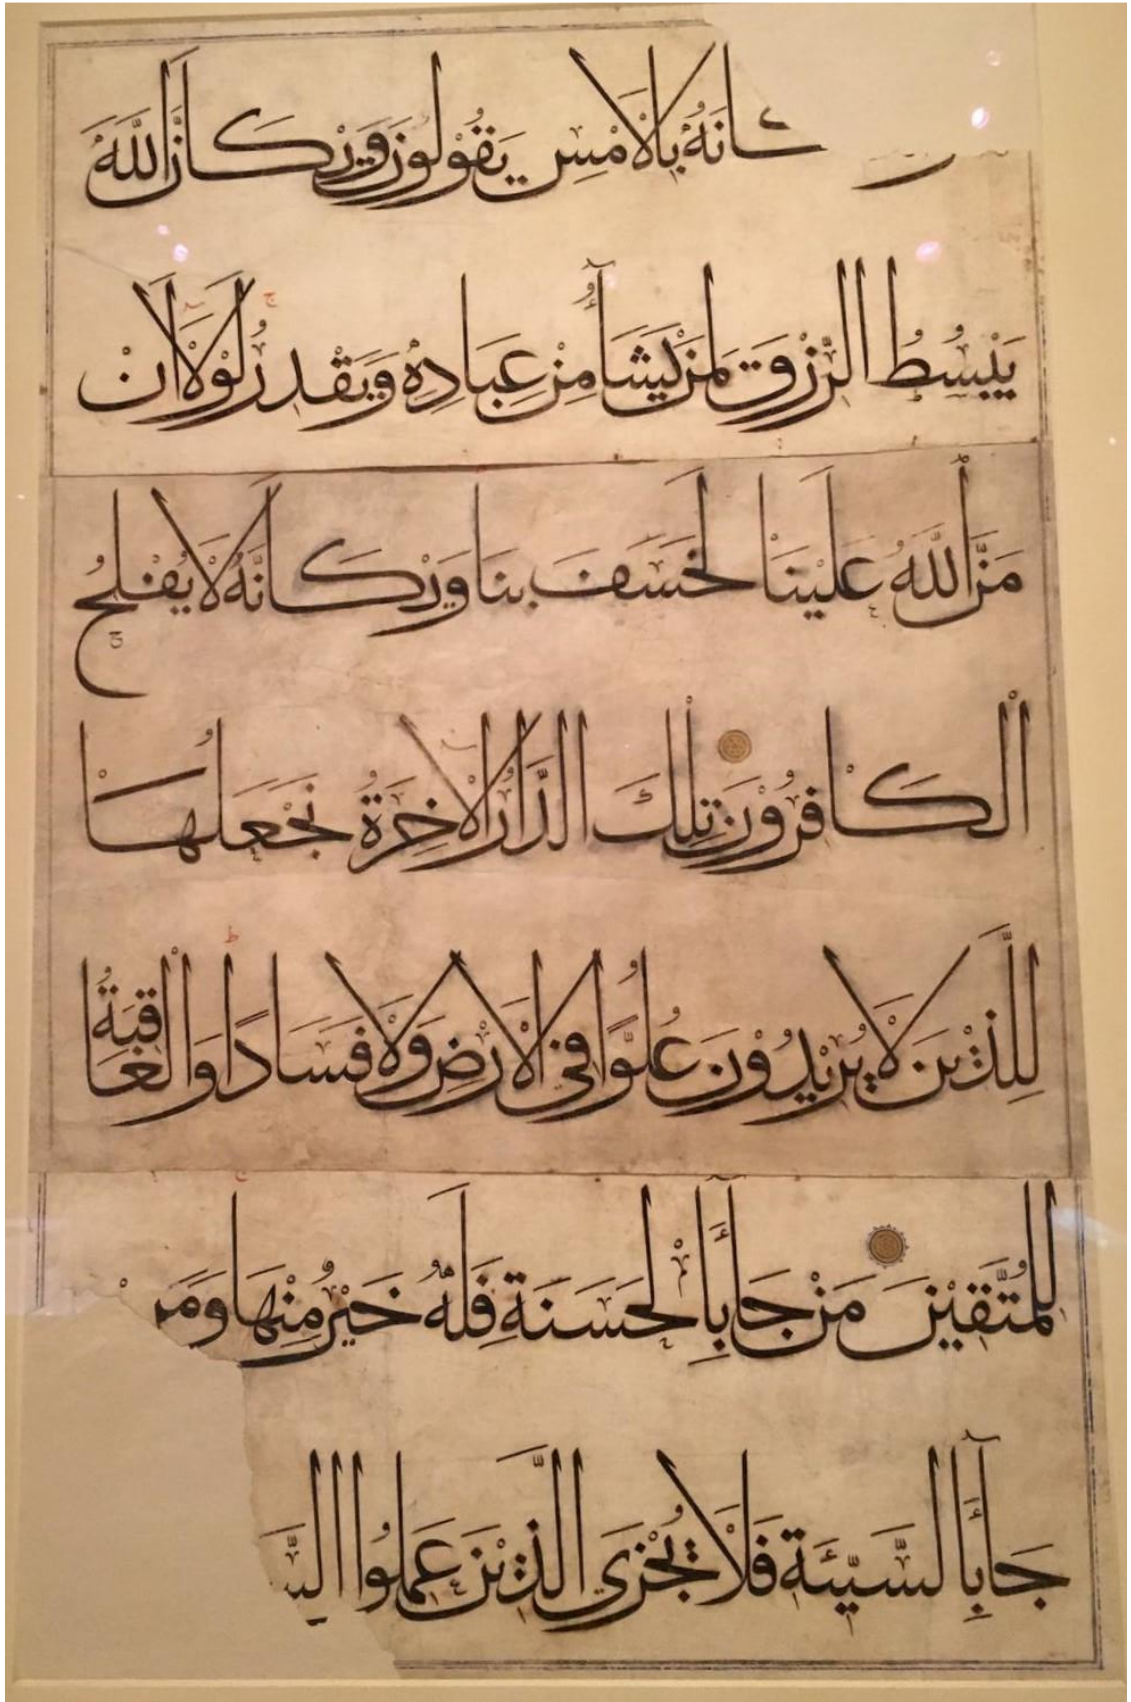 كَانَهُ بِالْاَمْسِ يَقُوْلُوْنَ وَيْكَاَنَّ اللّٰهَ
يَبْسُطُ الرِّزْقَ لِمَنْ يَشَآءُ مِنْ عِبَادِهِ وَيَقْدِرُ لَوْلَا اَنْ
مَنَّ اللّٰهُ عَلَيْنَا لَخَسَفَ بِنَا وَيْكَاَنَّهُ لَا يُفْلِحُ
الْكَافِرُوْنَ تِلْكَ الدَّارُ الْاٰخِرَةُ نَجْعَلُهَا
لِلَّذِيْنَ لَا يُرِيْدُوْنَ عُلُوًّا فِى الْاَرْضِ وَلَا فَسَادًا وَالْعَاقِبَةُ
لِلْمُتَّقِيْنَ مَنْ جَآءَ بِالْحَسَنَةِ فَلَهُ خَيْرٌ مِنْهَا وَمَنْ
جَآءَ بِالسَّيِّئَةِ فَلَا يُجْزَى الَّذِيْنَ عَمِلُوا